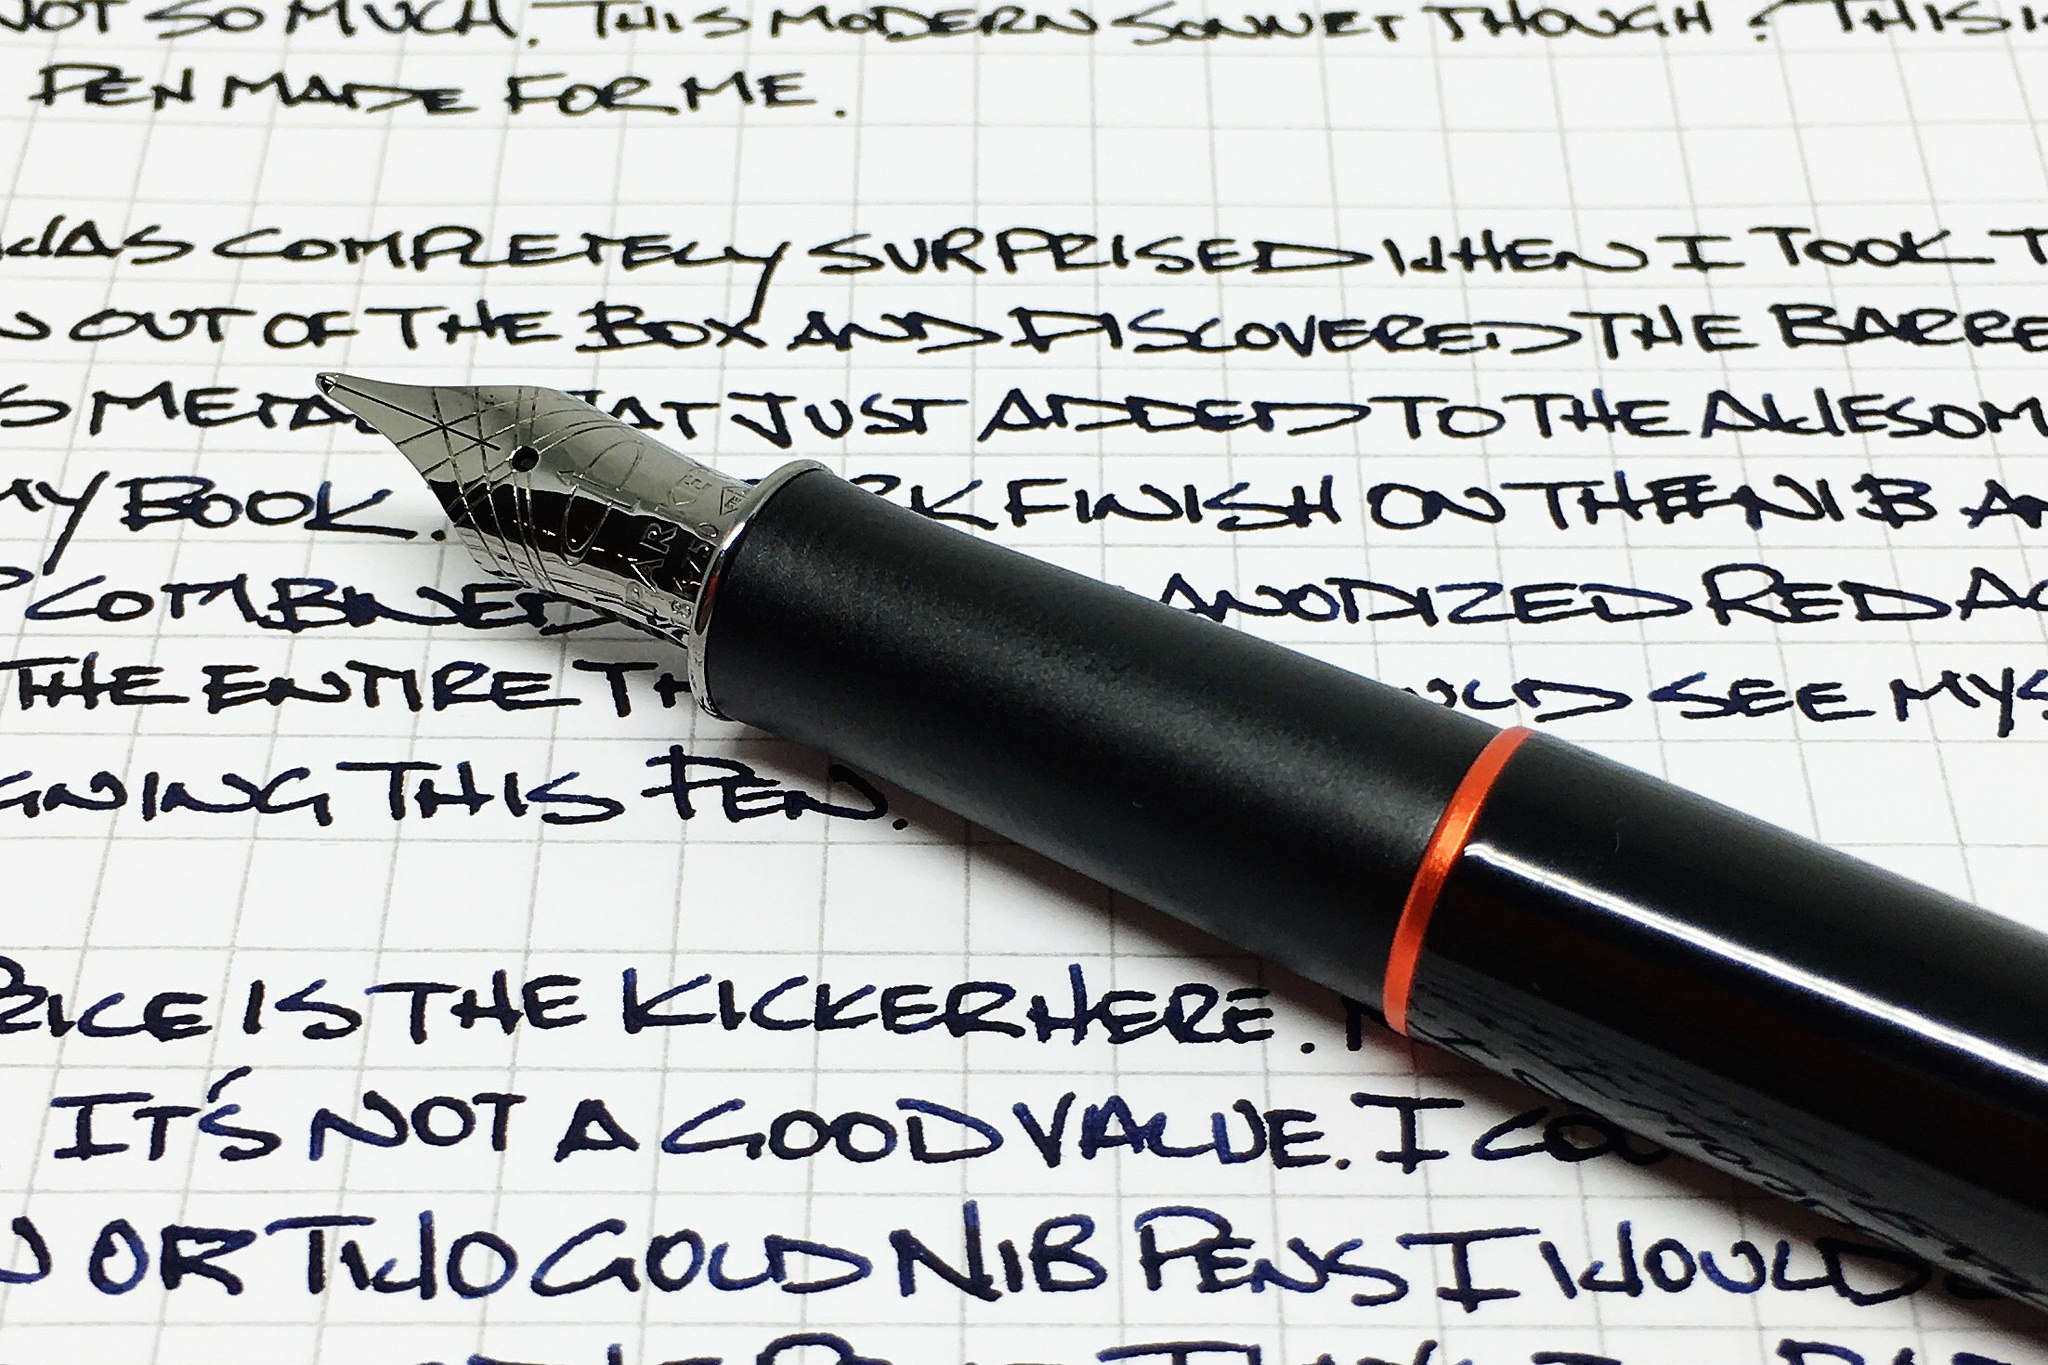 NOT SO MUCH. THIS MODERN SONNET THOUGH? THIS IS
PEN MADE FOR ME.
WAS COMPLETELY SURPRISED WHEN I TOOK T
OUT OF THE BOX AND DISCOVERED THE BARRE
S METAL AT JUST ADDED TO THE AWESOM
MY BOOK. RK FINISH ON THE NIB AN
COMBINED ANODIZED RED AC
THE ENTIRE TH OULD SEE MYS
GNING THIS PEN.
PRICE IS THE KICKER HERE.
IT'S NOT A GOOD VALUE. I COU
OR TWO GOLD NIB PENS I WOULD
PARKER
750